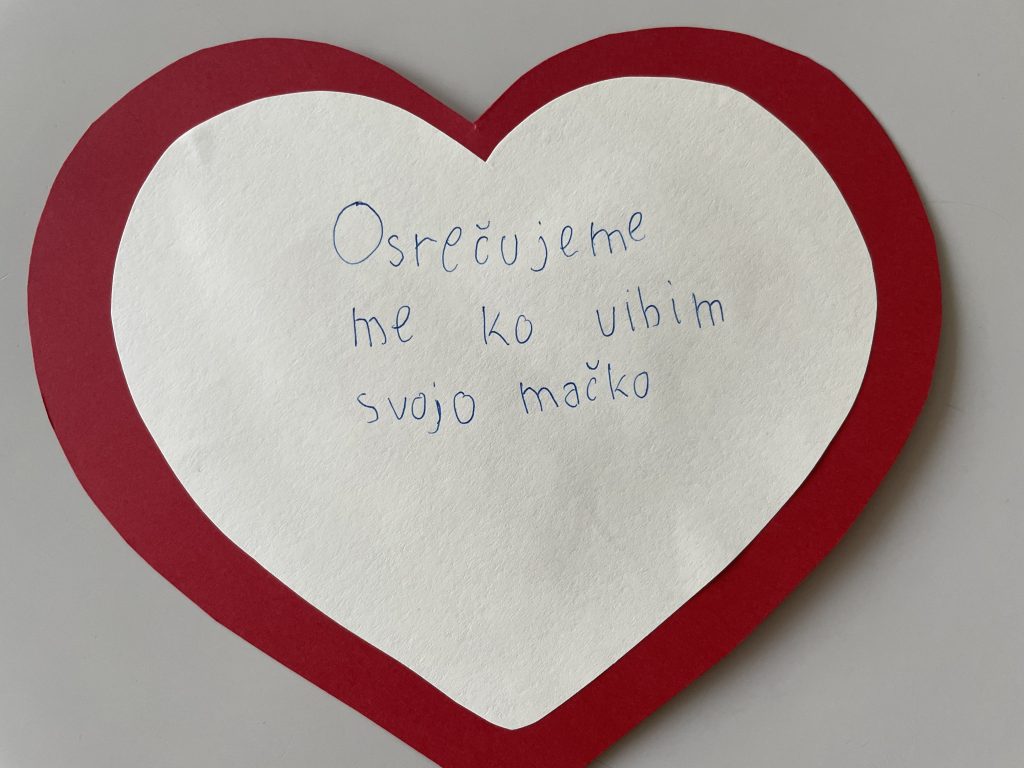 Osrečujeme
me ko vibim
svojo mačko